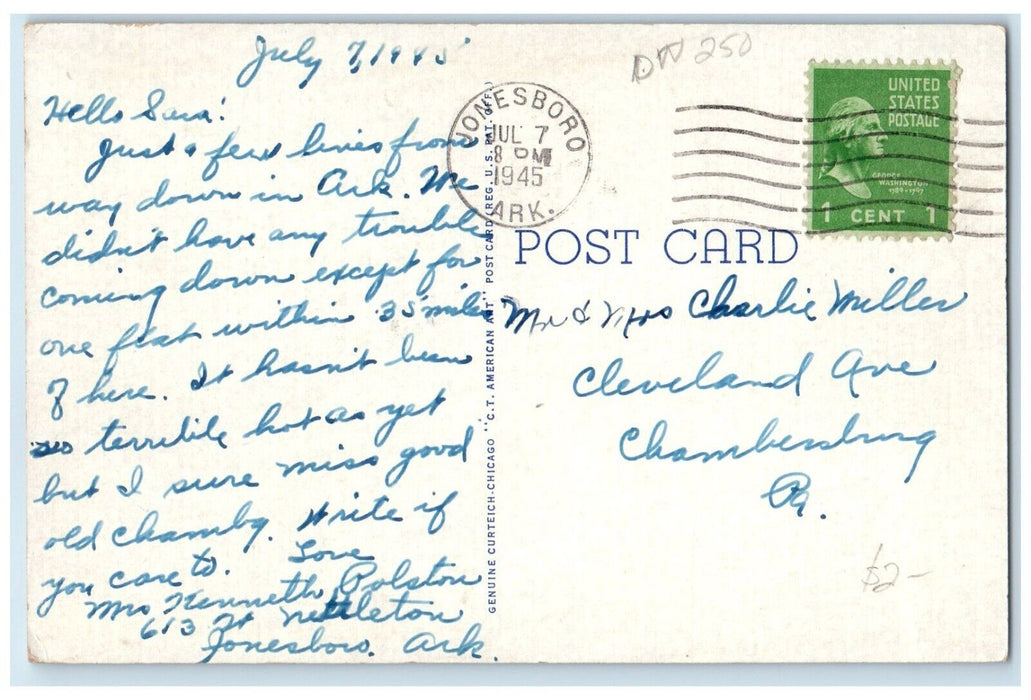 July 7, 1945
Hello Sara:
Just a few lines from
way down in Ark. We
didn't have any trouble
coming down except for
one flat within 35 miles
of here. It hasn't been
so terrible hot as yet
but I sure miss good
old Chambg. Write if
you care to. Love
Mrs Kenneth Polston
613 W Nettleton
Jonesboro. Ark.
GENUINE CURTEICH-CHICAGO "C.T. AMERICAN ART" POST CARD (REG. U.S. PAT. OFF.)
DW 250
JONESBORO
JUL 7
8 PM
1945
ARK.
UNITED
STATES
POSTAGE
GEORGE
WASHINGTON
1789-1797
1 CENT 1
POST CARD
Mr & Mrs Charlie Miller
Cleveland Ave
Chambersburg
Pa.
$2-